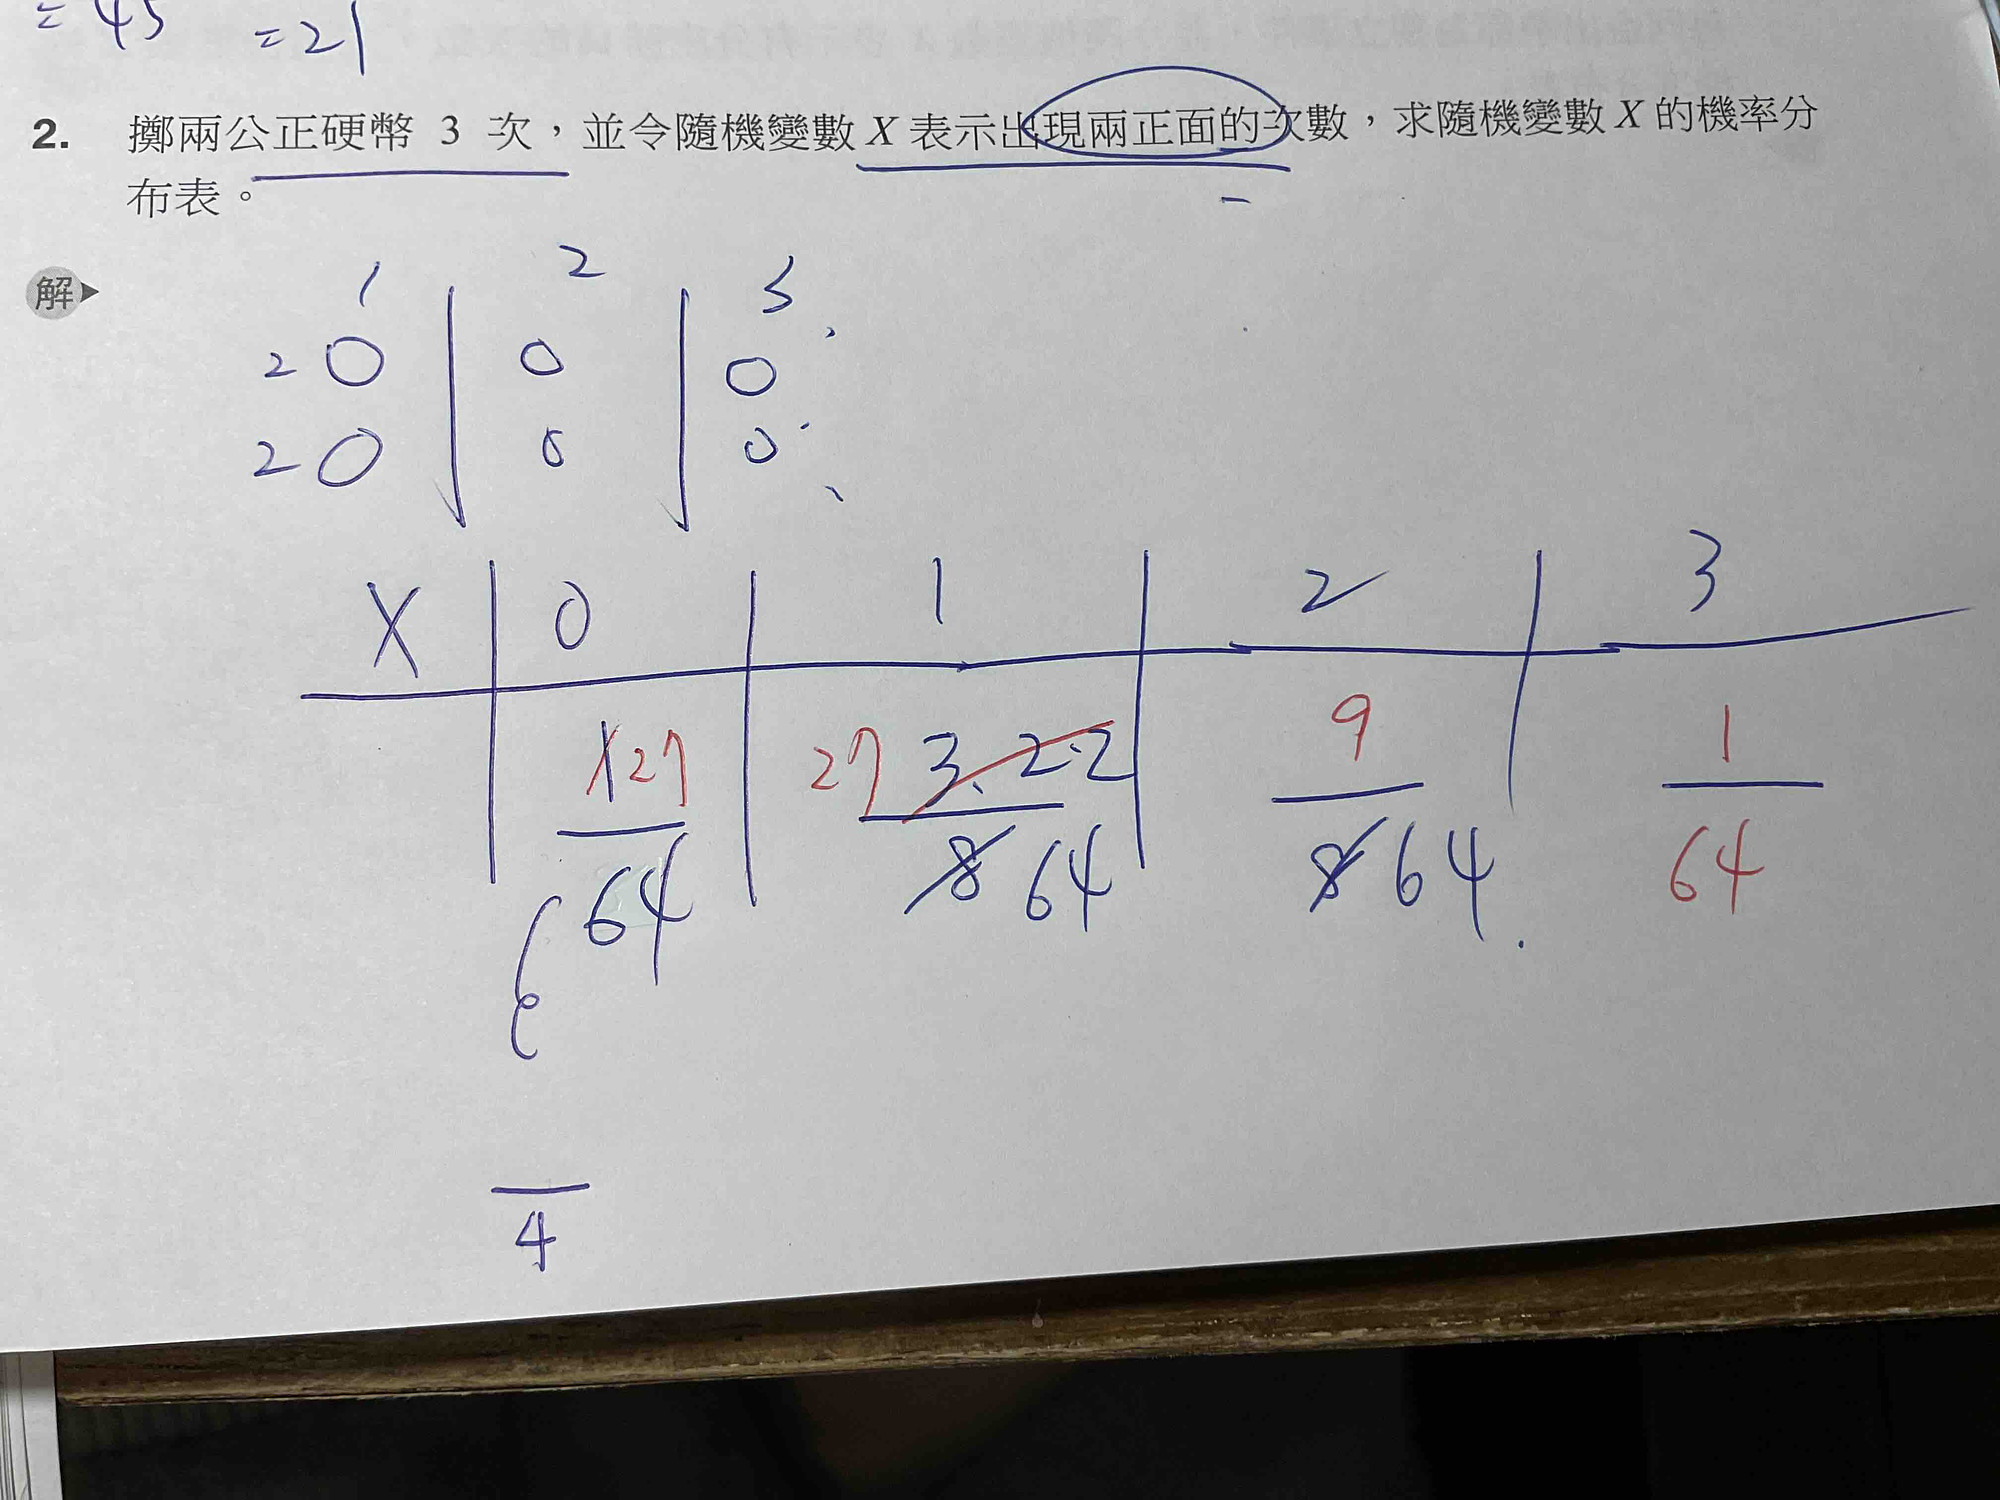 = 45 = 21
2. 擲兩公正硬幣 3 次，並令隨機變數 X 表示出現兩正面的次數，求隨機變數 X 的機率分
布表。
解
1 2 3
2 0 0 0
2 0 0 0
X 0 1 2 3
27 27 3·2·2 9 1
64 8 64 8 64 64
4